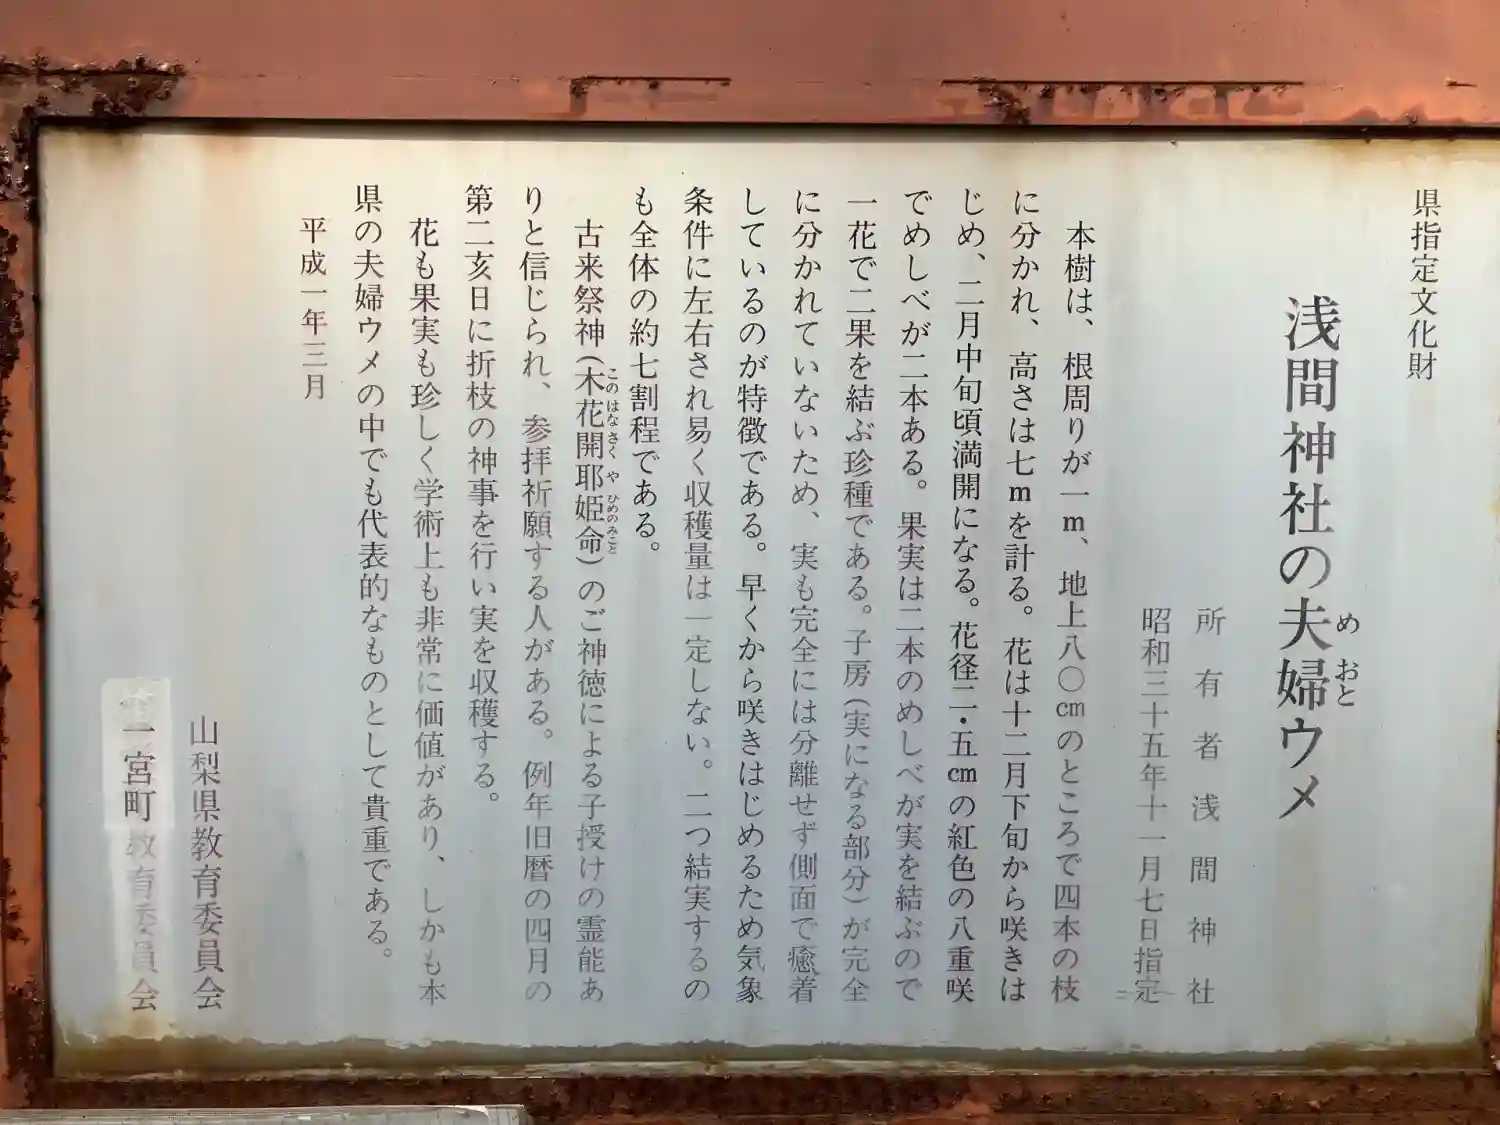 県指定文化財
浅間神社の夫婦ウメ
めおと
所有者浅間神社
昭和三十五年十一月七日指定
本樹は、根周りが一m、地上八〇cmのところで四本の枝
に分かれ、高さは七mを計る。花は十二月下旬から咲きは
じめ、二月中旬頃満開になる。花径二・五cmの紅色の八重咲
でめしべが二本ある。果実は二本のめしべが実を結ぶので
一花で二果を結ぶ珍種である。子房(実になる部分)が完全
に分かれていないため、実も完全には分離せず側面で癒着
しているのが特徴である。早くから咲きはじめるため気象
条件に左右され易く収穫量は一定しない。二つ結実するの
も全体の約七割程である。
古来祭神(木花開耶姫命)のご神徳による子授けの霊能あ
このはなさくやひめのみこと
りと信じられ、参拝祈願する人がある。例年旧暦の四月の
第二亥日に折枝の神事を行い実を収穫する。
花も果実も珍しく学術上も非常に価値があり、しかも本
県の夫婦ウメの中でも代表的なものとして貴重である。
平成一年三月
山梨県教育委員会
一宮町教育委員会